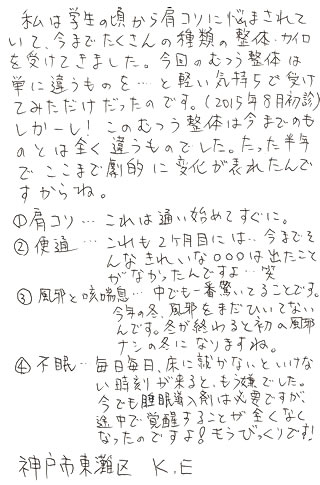 私は学生の頃から肩コリに悩まされて
いて、今までたくさんの種類の整体・カイロ
を受けてきました。今回のむつう整体は
単に違うものを…と軽い気持ちで受け
てみただけだったのです。(2015年8月初診)
しかーし!このむつう整体は今までのも
のとは全く違うものでした。たった半年
でここまで劇的に変化が表れたんで
すからね。
①肩コリ…これは通い始めてすぐに。
②便通…これも2ヶ月目には…今までそ
んなきれいな○○○は出たこと
がなかったんですよ…笑
③風邪と咳喘息…中でも一番驚いてることです。
今年の冬、風邪をまだひいてない
んです。冬が終わると初の風邪
ナシの冬になりますね。
④不眠…毎日毎日、床に就かないといけな
い時刻が来ると、もう嫌でした。
今でも睡眠導入剤は必要ですが、
途中で覚醒することが全くなく
なったのですよ!もうびっくりです!
神戸市東灘区 K.E